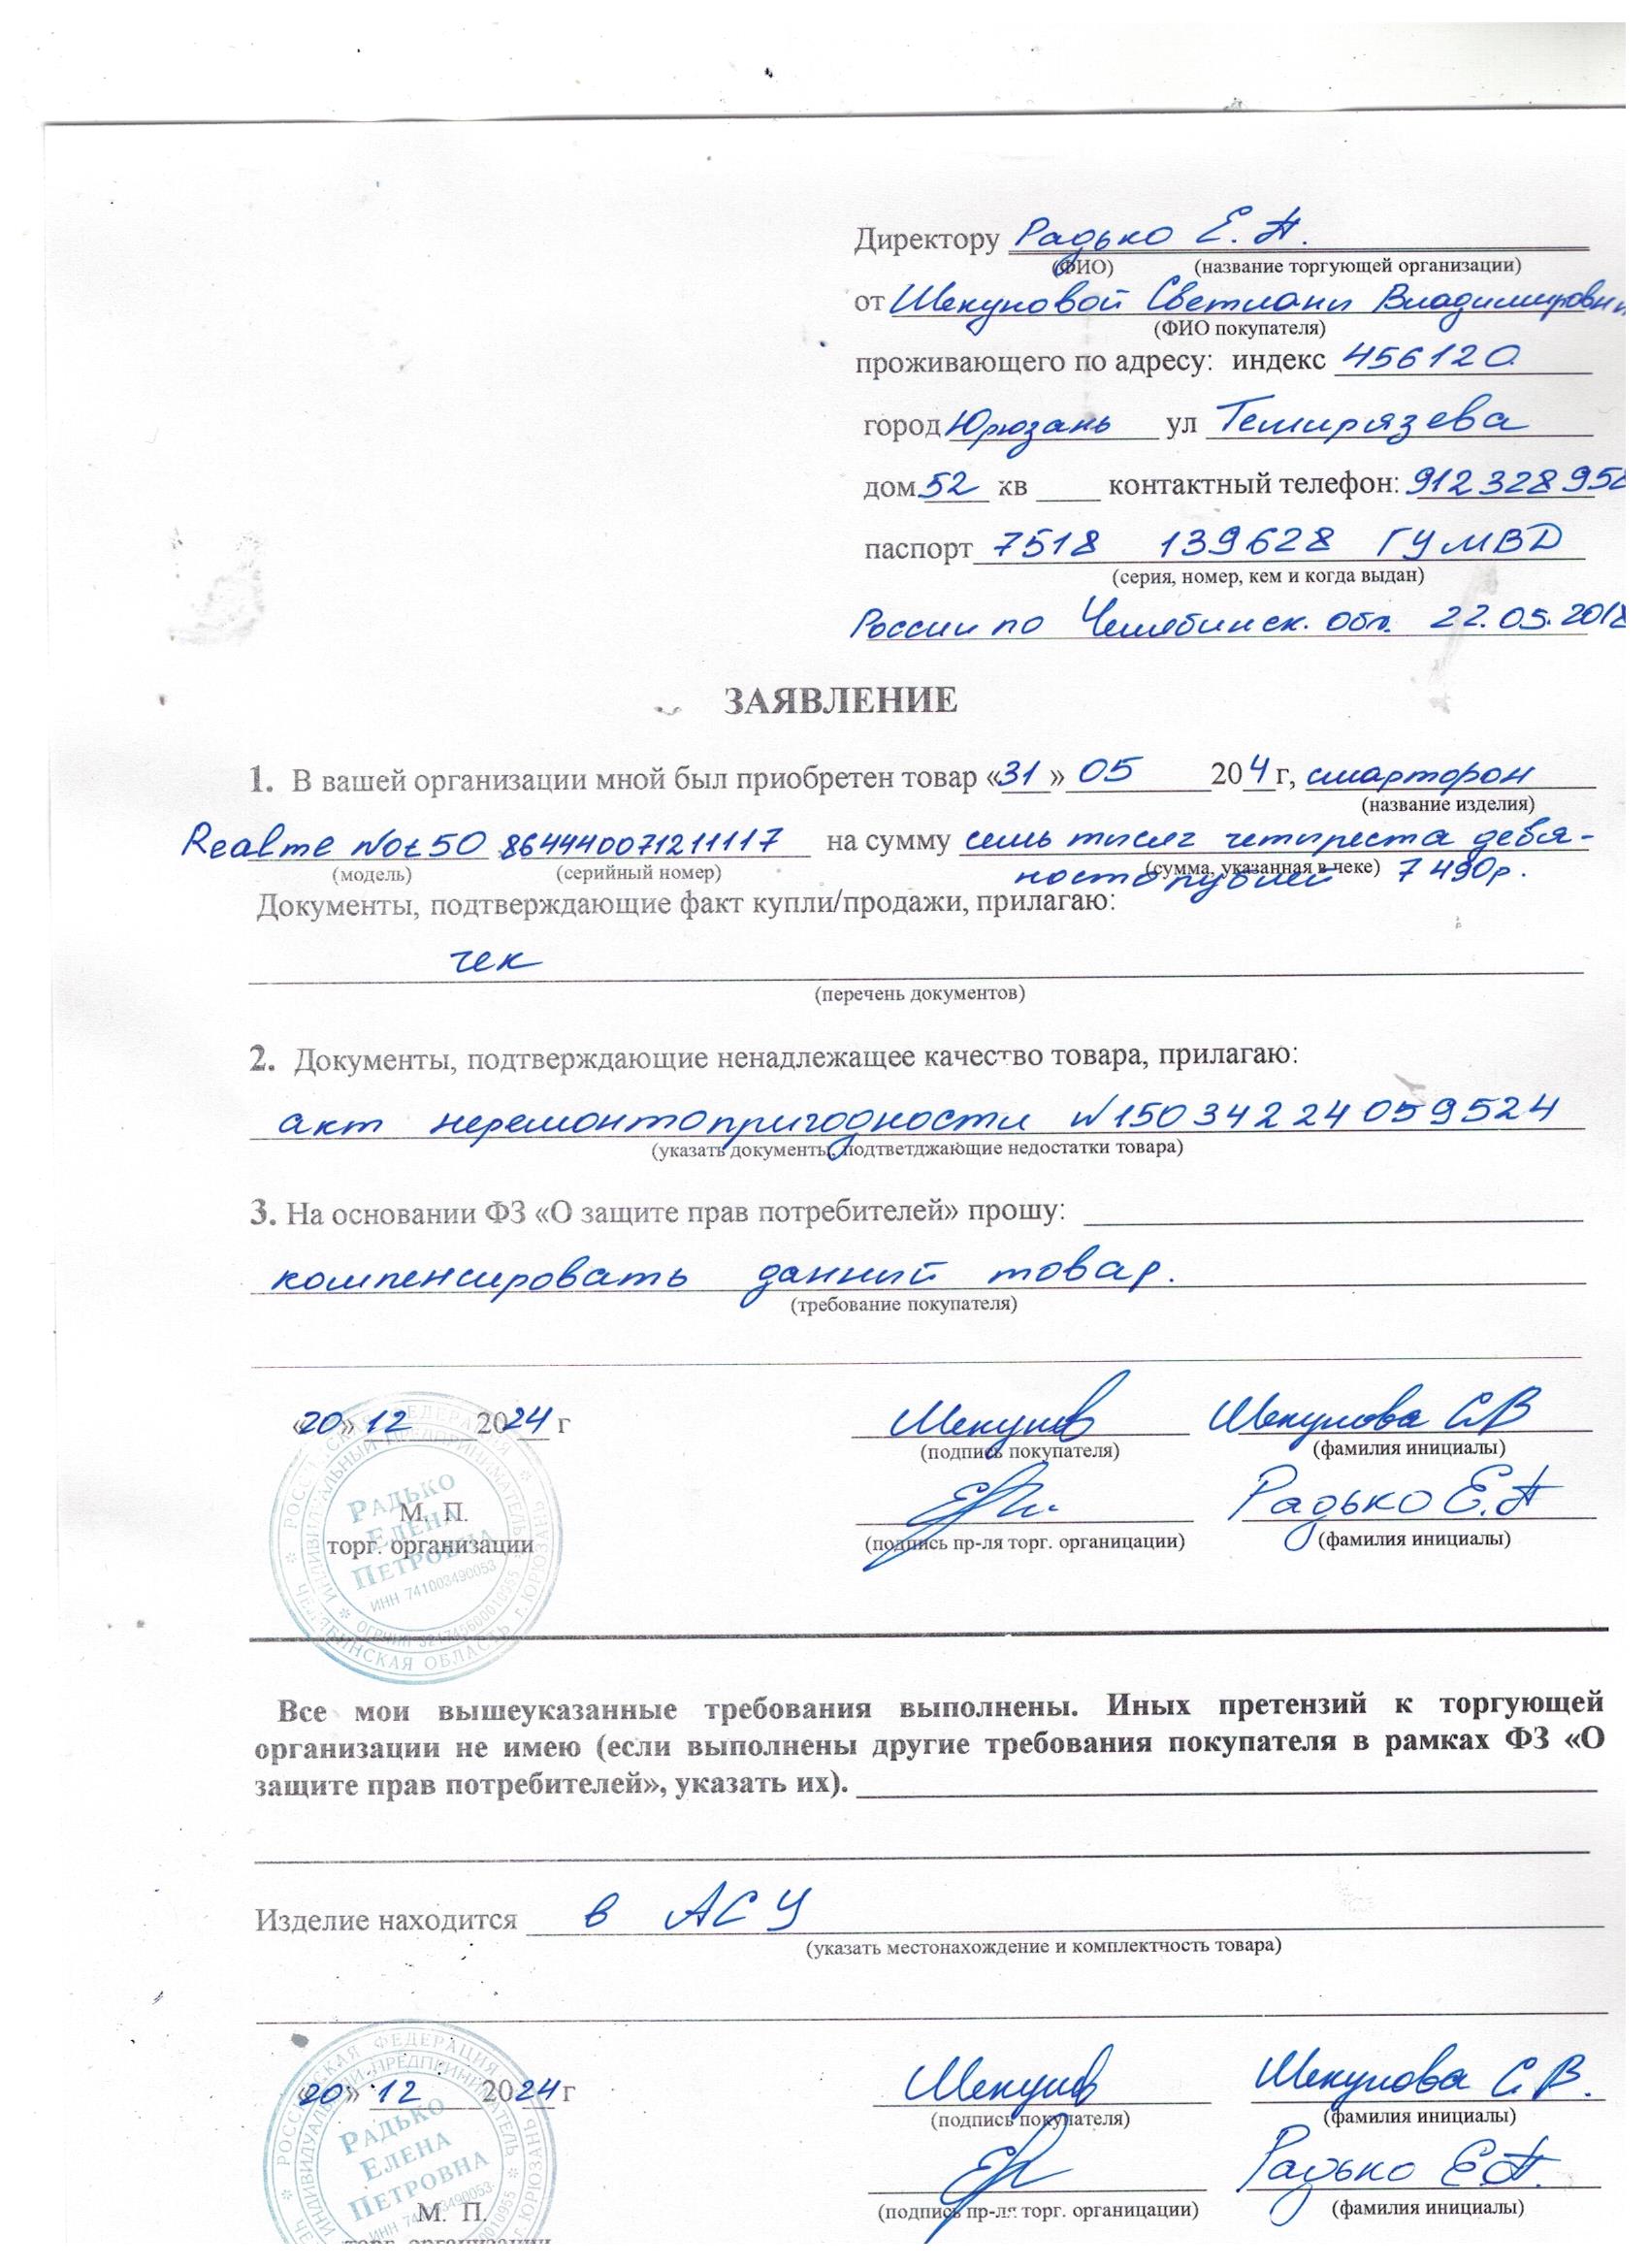 Директору Радько Е.П.
(ФИО) (название торгующей организации)
от Шекуновой Светланы Владимировны
(ФИО покупателя)
проживающего по адресу: индекс 456120
город Юрюзань ул Темирязева
дом 52 кв ____ контактный телефон: 912328958
паспорт 7518 139628 ГУМВД
(серия, номер, кем и когда выдан)
России по Челябинск. обл. 22.05.2018
ЗАЯВЛЕНИЕ
1. В вашей организации мной был приобретен товар «31» 05 204 г, смартфон
(название изделия)
Realme Not 50 864440071211117 на сумму семь тысяч четыреста девя-
(модель) (серийный номер) (сумма, указанная в чеке)
носто рублей 7490р.
Документы, подтверждающие факт купли/продажи, прилагаю:
чек
(перечень документов)
2. Документы, подтверждающие ненадлежащее качество товара, прилагаю:
акт неремонтопригодности N15034224059524
(указать документы, подтветджающие недостатки товара)
3. На основании ФЗ «О защите прав потребителей» прошу:
компенсировать данный товар.
(требование покупателя)
«20» 12 2024 г Шекунов Шекунова С.В
(подпись покупателя) (фамилия инициалы)
Радько Е.П
М. П.
торг. организации
(подпись пр-ля торг. органицации) (фамилия инициалы)
РОССИЙСКАЯ ФЕДЕРАЦИЯ
ИНДИВИДУАЛЬНЫЙ ПРЕДПРИНИМАТЕЛЬ
РАДЬКО
ЕЛЕНА
ПЕТРОВНА
ИНН 741003490053
ЧЕЛЯБИНСКАЯ ОБЛАСТЬ г. ЮРЮЗАНЬ
Все мои вышеуказанные требования выполнены. Иных претензий к торгующей
организации не имею (если выполнены другие требования покупателя в рамках ФЗ «О
защите прав потребителей», указать их).
Изделие находится в АСЦ
(указать местонахождение и комплектность товара)
«20» 12 2024 г Шекунов Шекунова С.В.
(подпись покупателя) (фамилия инициалы)
Радько Е.П.
(подпись пр-ля торг. органицации) (фамилия инициалы)
М. П.
торг. организации
РОССИЙСКАЯ ФЕДЕРАЦИЯ
ИНДИВИДУАЛЬНЫЙ ПРЕДПРИНИМАТЕЛЬ
РАДЬКО
ЕЛЕНА
ПЕТРОВНА